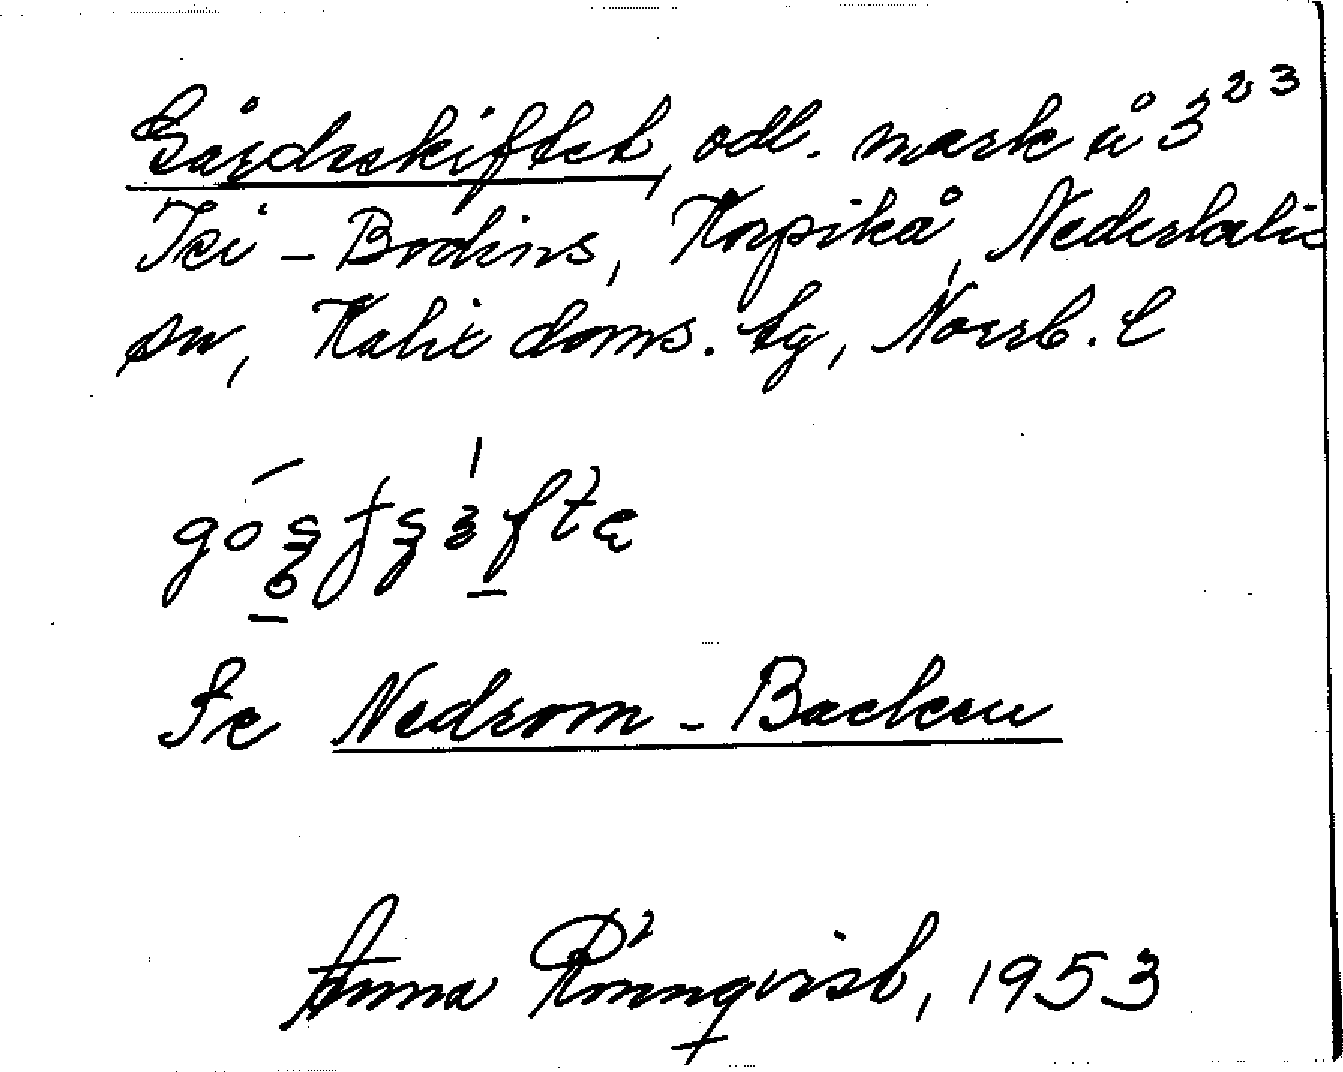 Gårdsskiftet, odl. mark å 3²³
Per-Bodins, Korpikå, Nederkalix
sn, Kalix doms. tg, Norrb. l
Se Nedrom-Backen
Anna Rönnqvist, 1953